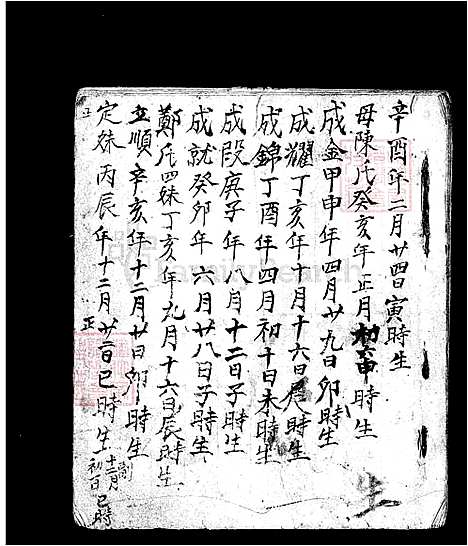 辛酉年二月廿四日寅時生
母陳氏癸亥年正月初六申時生
成金甲申年四月廿九日卯時生
成耀丁亥年十月十六日辰時生
成錦丁酉年四月初十日未時生
成段庚子年八月十二日子時生
成就癸卯年六月廿八日子時生
鄭氏四妹丁亥年九月十六日辰時生
立順辛亥年十二月廿日卯時生
正
定妹丙辰年十二月廿二日巳時生
正
十二月
初一日巳時
生